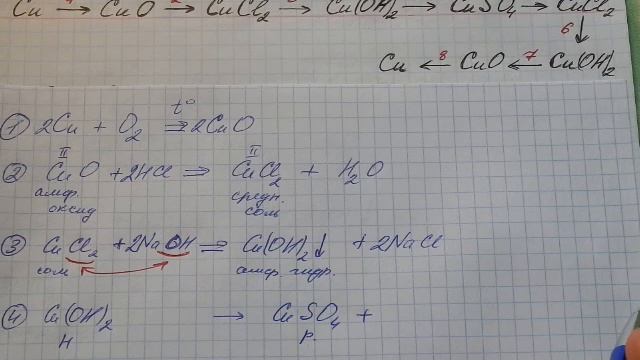 Cu → CuO → CuCl₂ → Cu(OH)₂ → CuSO₄ → CuCl₂
6
Cu ←8 CuO ←7 Cu(OH)₂
① 2Cu + O₂ t° ⇒ 2CuO
II II
② CuO + 2HCl ⇒ CuCl₂ + H₂O
амф. средн.
оксид соль
③ CuCl₂ + 2NaOH ⇒ Cu(OH)₂↓ + 2NaCl
соль амф. гидр.
④ Cu(OH)₂ → CuSO₄ +
Н р.